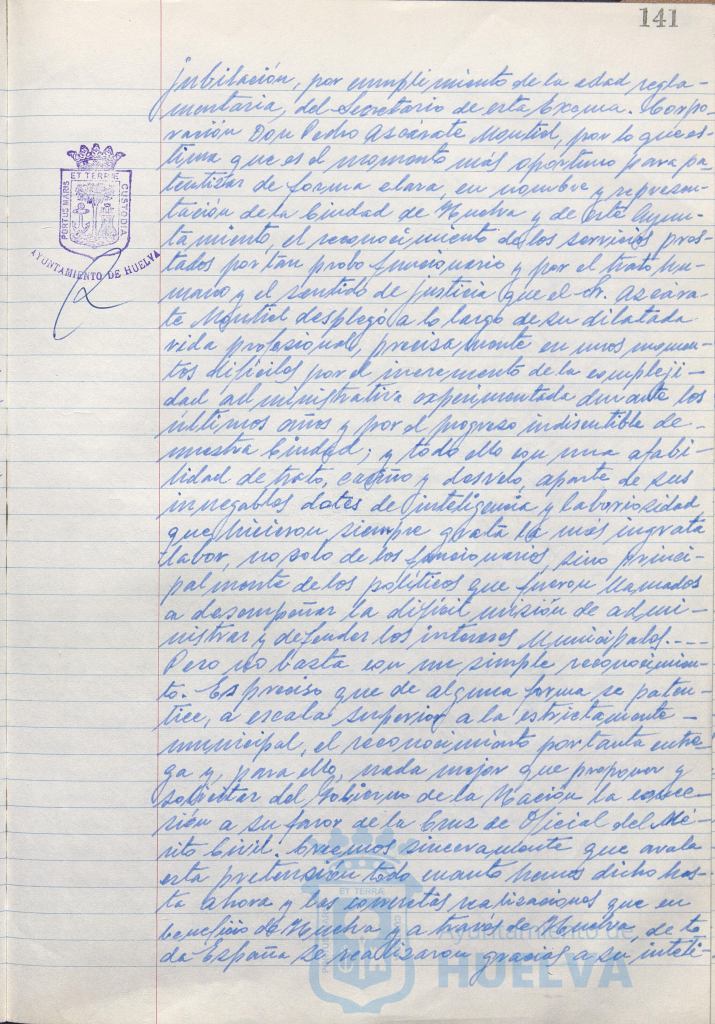 141
jubilación, por cumplimiento de la edad regla-
mentaria, del Secretario de esta Excma. Corpo-
ración Don Pedro Azcárate Montiel, por lo que es-
tima que es el momento más oportuno para pa-
tentizar de forma clara, en nombre y represen-
tación de la Ciudad de Huelva y de este Ayun-
tamiento, el reconocimiento de los servicios pres-
tados por tan probo funcionario y por el trato hu-
mano y el sentido de justicia que el Sr. Azcára-
te Montiel desplegó a lo largo de su dilatada
vida profesional, precisamente en unos momen-
tos difíciles por el incremento de la compleji-
dad administrativa experimentada durante los
últimos años y por el progreso indiscutible de
nuestra Ciudad; y todo ello con una afabi-
lidad de trato, cariño y desvelo, aparte de sus
innegables dotes de inteligencia y laboriosidad
que hicieron siempre grata la más ingrata
labor, no solo de los funcionarios, sino princi-
palmente de los políticos que fueron llamados
a desempeñar la difícil misión de admi-
nistrar y defender los intereses Municipales.---
Pero no basta con un simple reconocimien-
to. Es preciso que de alguna forma se paten-
tice, a escala superior a la estrictamente
municipal, el reconocimiento por tanta entre-
ga y, para ello, nada mejor que proponer y
solicitar del Gobierno de la Nación la conce-
sión a su favor de la Cruz de Oficial del Mé-
rito Civil. Creemos sinceramente que avala
esta pretensión todo cuanto hemos dicho has-
ta ahora y las concretas realizaciones que en
beneficio de Huelva y a través de Huelva, de to-
da España se realizaron gracias a su inteli-
PORTUS MARIS
ET TERRÆ
CUSTODIA
AYUNTAMIENTO DE HUELVA
ET TERRÆ
ayuntamiento de
HUELVA